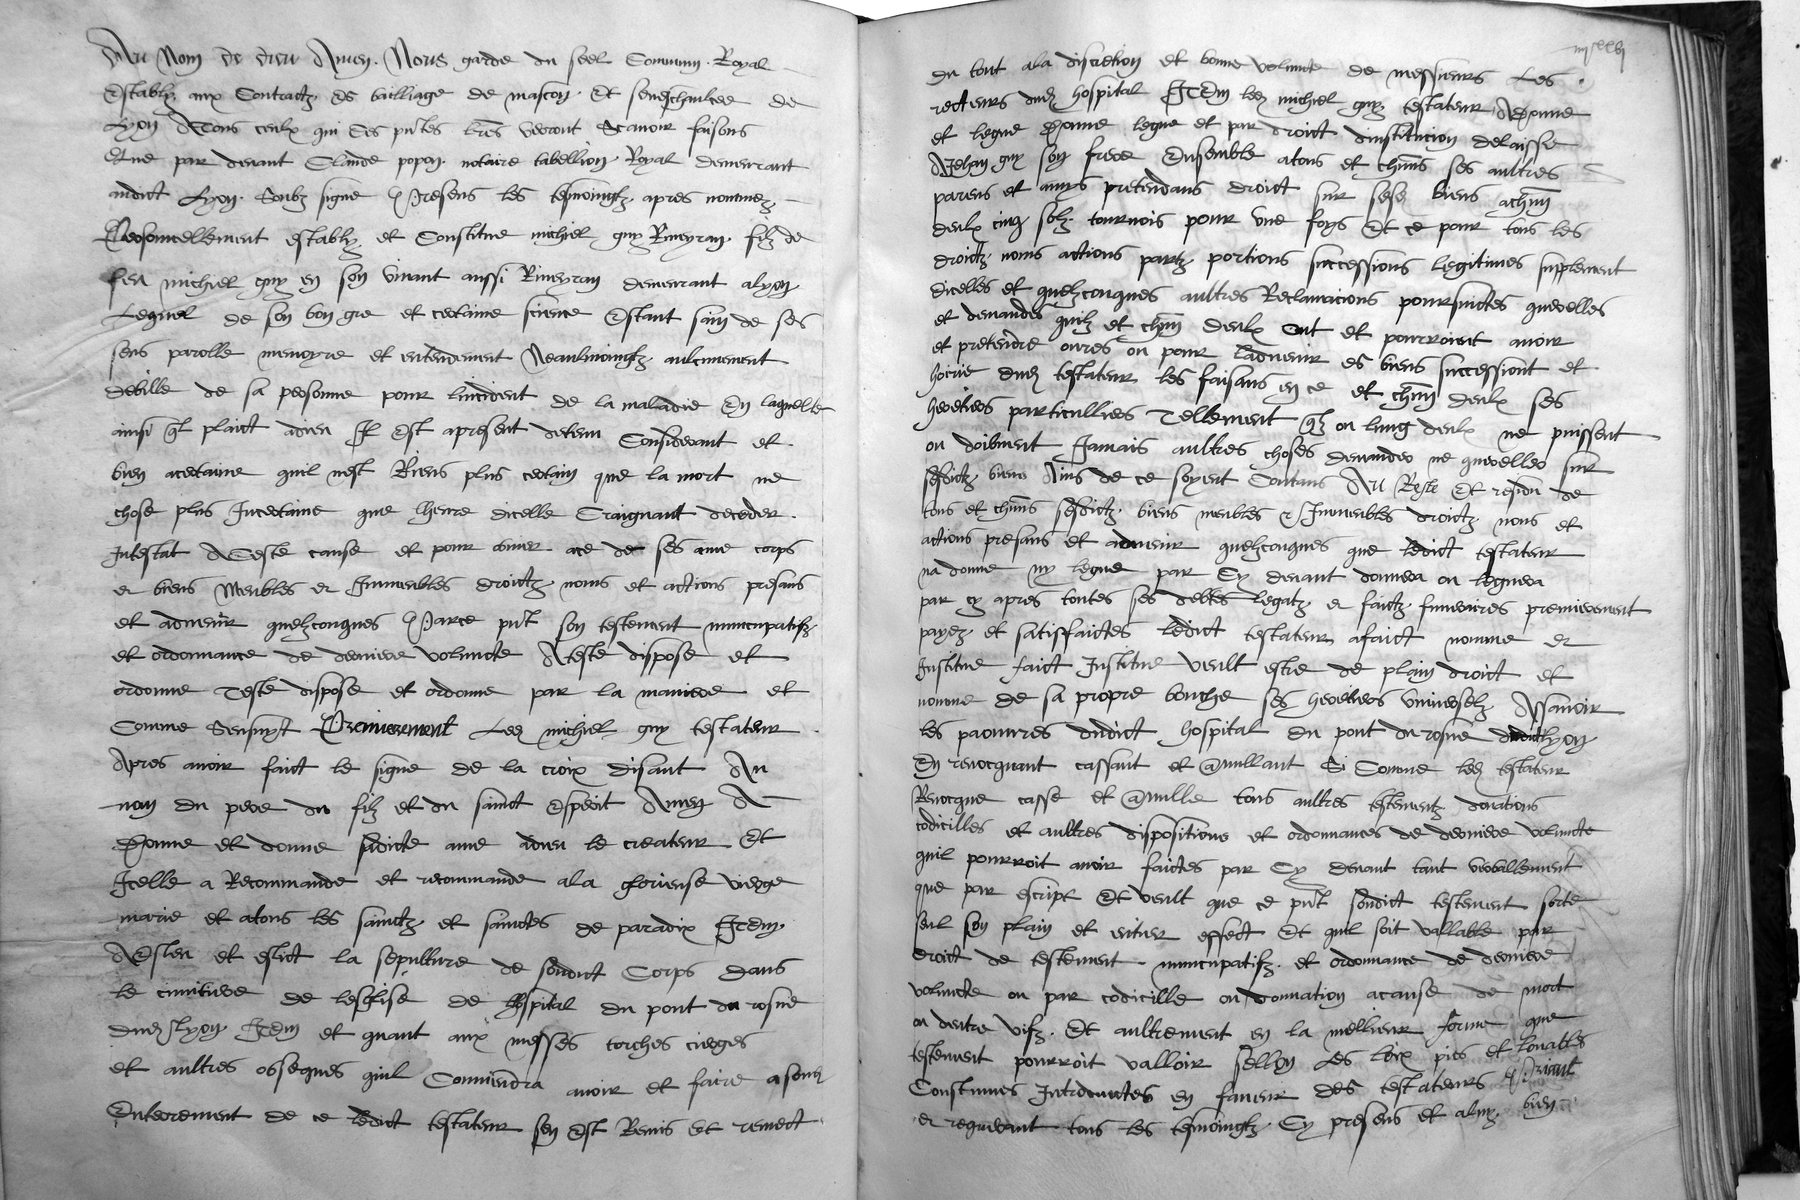 Au Nom de dieu Amen. Nous garde du seel Commun Royal
Establÿ aux Contractz Es bailliage de mascon Et seneschaulcee de
Lyon ATous ceulx qui Ces pntes lres verront Scavoir faisons
Que par devant Claude popon notaire tabellion Royal demeurant
audict Lyon Soubz signe Presens les tesmoingtz apres nommez
Personnellement establÿ et Constitue michiel guy filz de
feu michiel guy en son vivant aussi demeurant alyon
Lequel de son bon gre et certaine science Estant sain de ses
sens parolle memoyre et entendement Neaulmoingtz aulcunement
debille de sa personne pour lincident de la maladie En laquelle
ainsi ql plaict adieu Il Est apresent detenu Considerant et
bien acertaine quil nest Riens plus certain que la mort ne
chose plus Incertaine que lheure dicelle Craignant deceder
Intestat ACeste cause et pour obvier ace de ses ame corps
et biens Meubles et Immeubles droictz noms et actions presans
et advenir quelzconques Parce pnt son testement nuncupatifz
et ordonnance de derniere volunte Ateste dispose et
ordonne Teste dispose et ordonne par la maniere et
Comme Sensuyt Premierement Led michiel guy testateur
Apres avoir faict le signe de la croix disant Au
nom du pere du filz et du sainct Esperit Amen A
Donne et donne sadicte ame adieu le createur Et
Icelle a Recommande et recommande ala glorieuse vierge
marie et atous les sainctz et sainctes de paradix Item
AEsleu et eslict la sepulture de sondict Corps dans
le cimitiere de leglise de lhospital du pont du rosne
dud Lyon Item et quant aux messes torches cierges
et aultres obseques quil Conviendra avoir et faire a son
Enterrement de ce ledict testateur sen Est Remis Et remect
du tout ala discretion et bonne volunte de messieurs Les
recteurs dud hospital Item led michiel guy testateur ADonne
et legue Donne legue et par droict dinstitucion delaisse
AJehan guy son frere Ensemble atous et chuns ses aultres
parens et amys pretendans droict sur sesd biens achun
deulx cinq solz tournois pour une foys Et ce pour tous les
droictz noms actions partz portions successions legitimes suplement
dicelles et quelzconques aultres Reclamacions poursuictes querelles
et demandes quilz et chun deulx Ont et pourroient avoir
et pretendre ores ou pour ladvenir es biens succession et
hoirie dud testateur les faisans en ce et chun deulx ses
heretiers particulliers Tellement qlz ou lung deulx ne puissent
ou doibvent Jamais aultres choses demander ne quereller sur
sesdictz biens Ains de ce soyent Contans Au Reste Et residu de
tous et chuns sesdictz biens meubles et Immeubles droictz noms et
actions presans et advenir quelzconques que ledict testateur
na donne ny legue par Cy devant donnera ou leguera
par cy apres toutes ses debtes legatz et faictz funeraires premierement
payez et satisfaictes ledict testateur afaict nomme et
Institue faict Institue veult estre de plain droict et
nomme de sa propre bouche ses heretiers universelz Assavoir
les paouvres dudict hospital du pont du rosne dudictlyon
En revocquant cassant et @nullant Si Comme led testateur
Revocque casse et @nulle tous aultres testementz donations
codicilles et aultres dispositions et ordonnances de derniere volunte
quil pourroit avoir faictes par Cy devant tant verballement
que par escript Et veult que ce pnt sondict testement sorte
seul son plain et entier effect Et quil soit vallable par
droict de testement nuncupatifz et ordonnance de derniere
volunte ou par codicille ou donnation acause de mort
ou dentre vifz Et aultrement en la meilleur forme que
testement pourroit valloir Sellon Les loix pies et louables
Constumes Introduictes en faveur des testateurs Priant
et requerant tous les tesmoingtz Cy presens et aluy bien